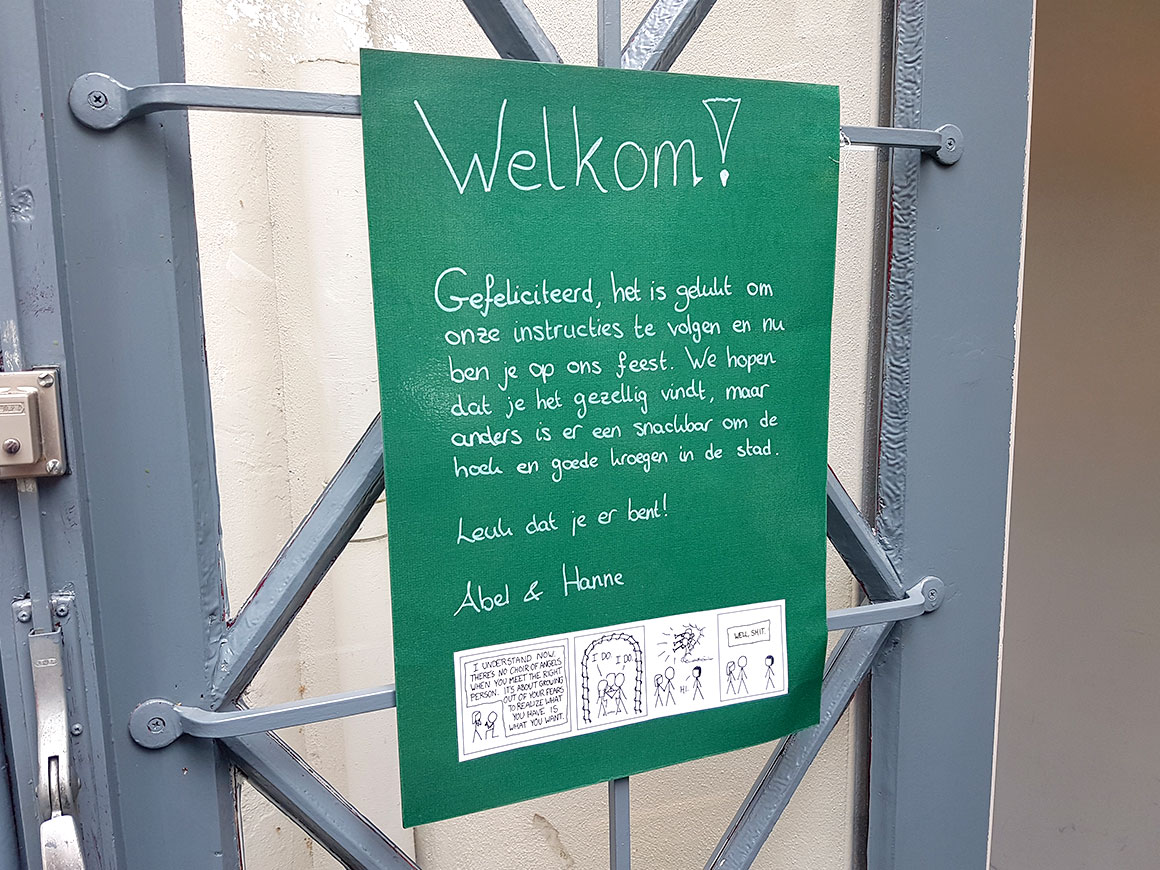 Welkom!
Gefeliciteerd, het is gelukt om
onze instructies te volgen en nu
ben je op ons feest. We hopen
dat je het gezellig vindt, maar
anders is er een snackbar om de
hoek en goede kroegen in de stad.
Leuk dat je er bent!
Abel & Hanne
I UNDERSTAND NOW.
THERE'S NO CHOIR OF ANGELS
WHEN YOU MEET THE RIGHT
PERSON. IT'S ABOUT GROWING
OUT OF YOUR FEARS
TO REALIZE WHAT
YOU HAVE IS
WHAT YOU WANT.
I DO.
I DO.
HI.
WELL, SHIT.